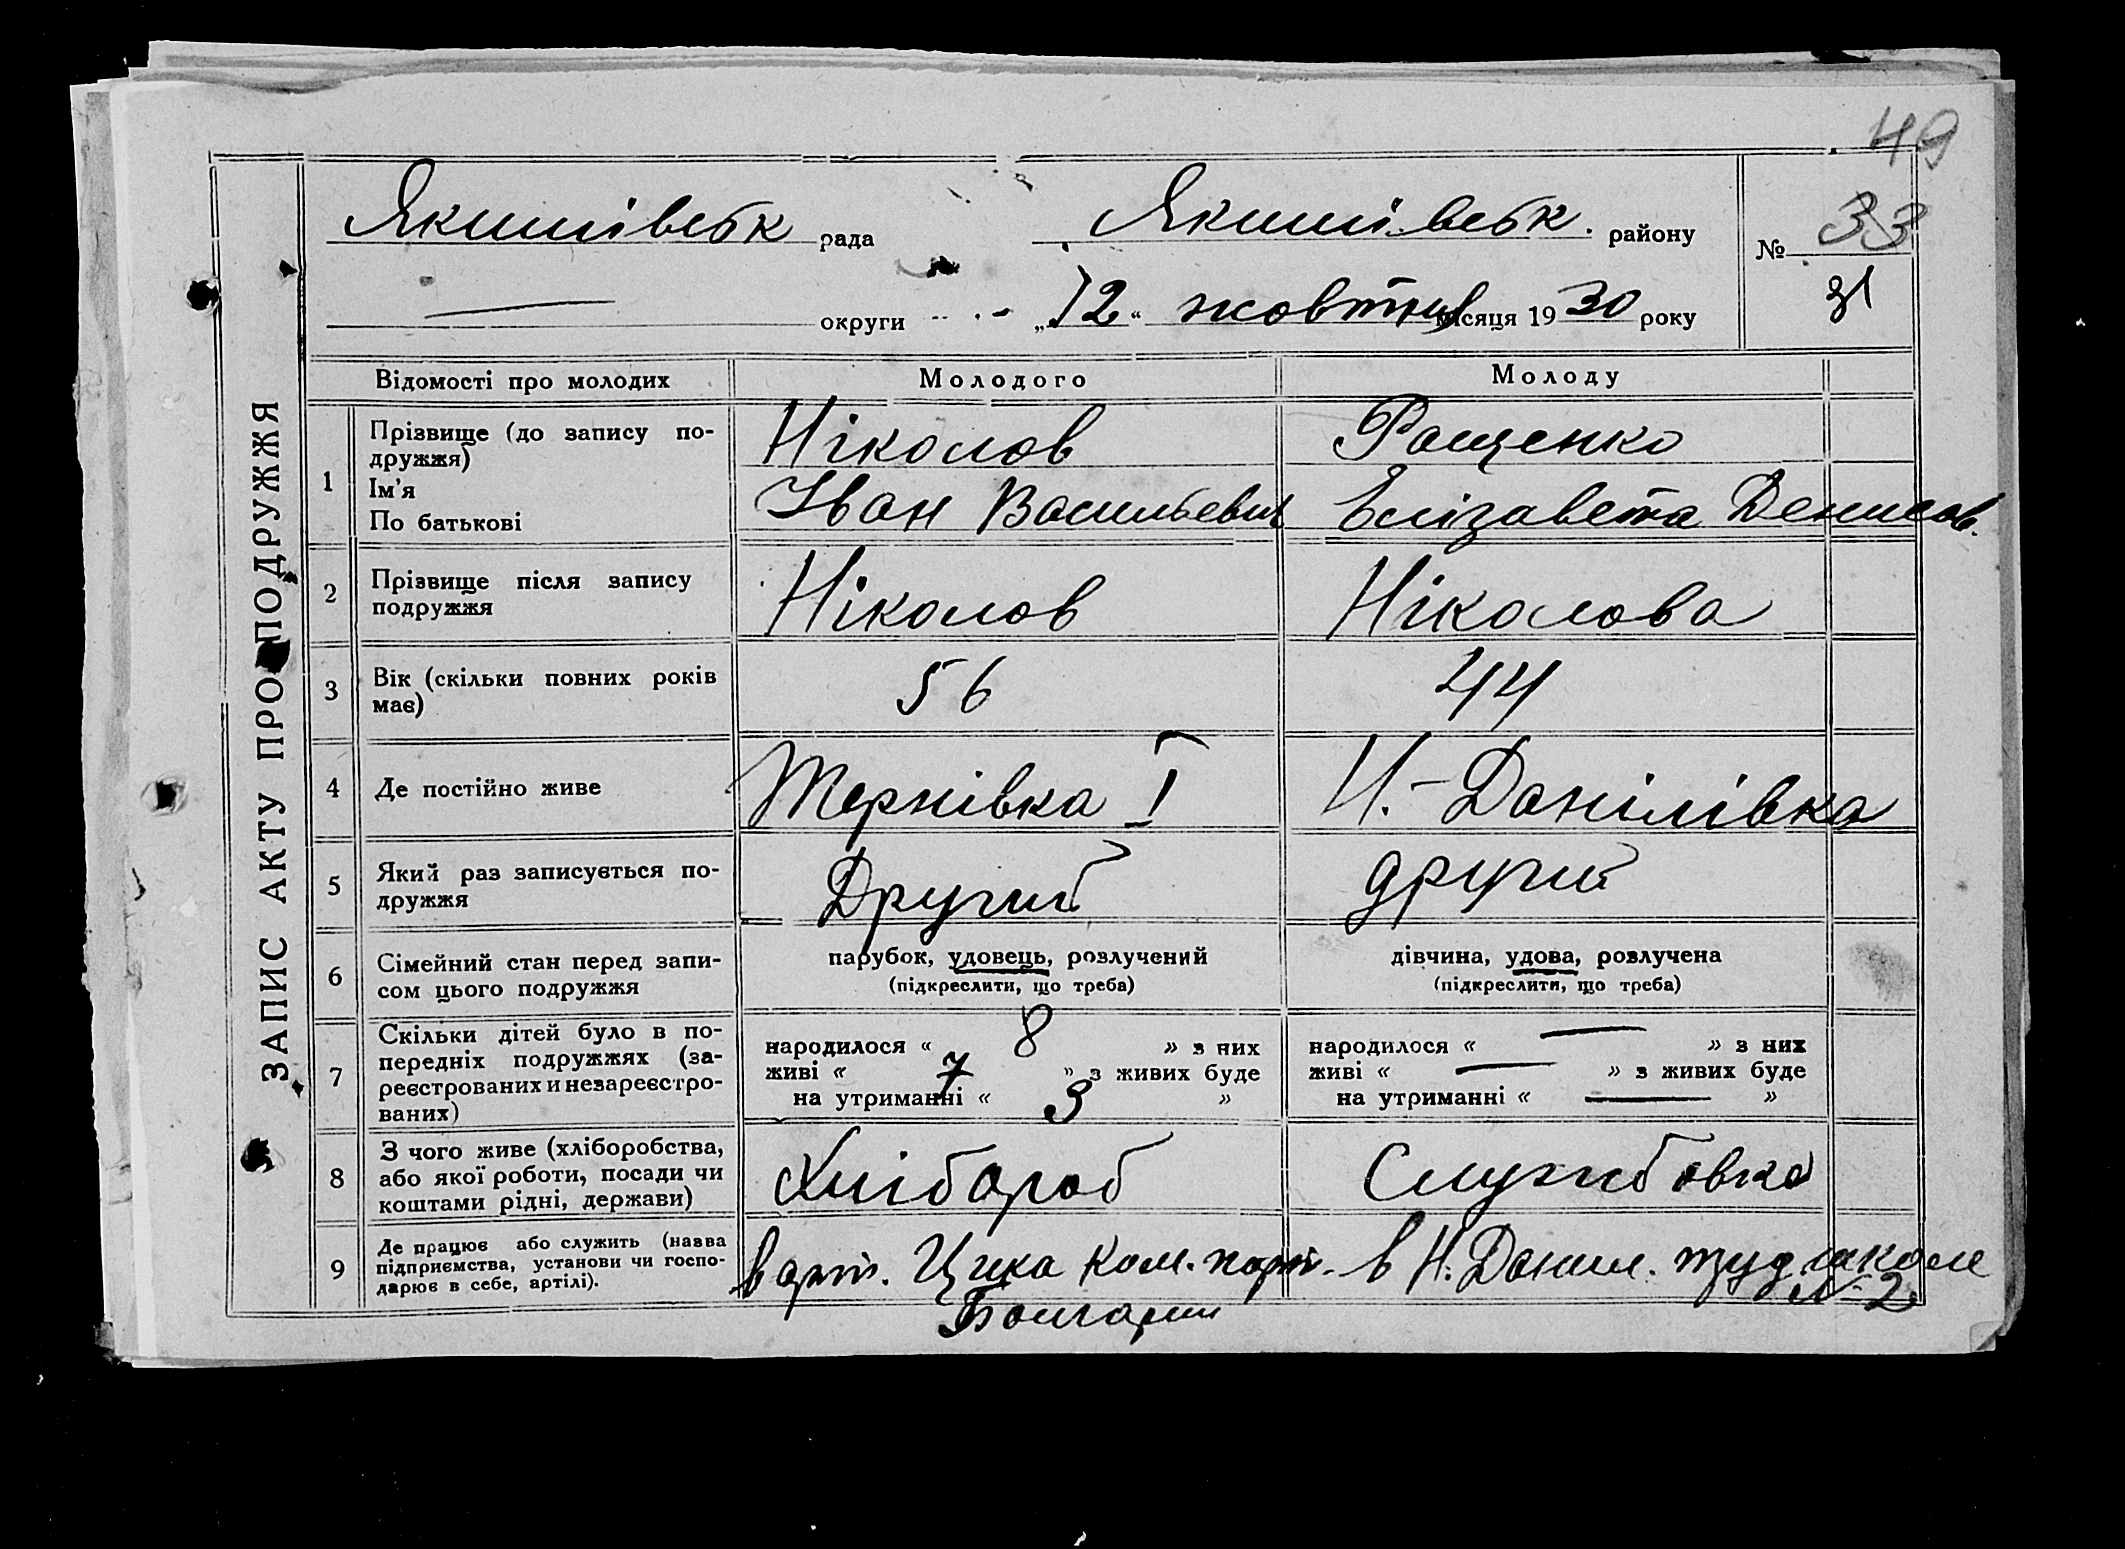 49
Якимівськ рада Якимівськ. району № 33
31
округи „12“ жовтня місяця 1930 року
ЗАПИС АКТУ ПРО ПОДРУЖЖЯ
Відомості про молодих Молодого Молоду
1 Прізвище (до запису по-
дружжя)
Ім'я
По батькові
Ніколов Ращенко
Іван Васильевич Елізавета Денисов.
2 Прізвище після запису
подружжя
Ніколов Ніколова
3 Вік (скільки повних років
має)
56 44
4 Де постійно живе Тернівка I Н.-Данілівка
5 Який раз записується по-
дружжя
Другий другий
6 Сімейний стан перед запи-
сом цього подружжя
парубок, удовець, розлучений
(підкреслити, що треба)
дівчина, удова, розлучена
(підкреслити, що треба)
7 Скільки дітей було в по-
передніх подружжях (за-
реєстрованих и незареєстро-
ваних)
народилося « 8 » з них
живі « 7 » з живих буде
на утриманні « 3 »
народилося « — » з них
живі « — » з живих буде
на утриманні « — »
8 З чого живе (хліборобства,
або якої роботи, посади чи
коштами рідні, держави)
Хлібороб Службовка
9 Де працює або служить (назва
підприємства, установи чи госпо-
дарює в себе, артілі).
в арт. Цика Ком. парт.
Болгарии
в Н. Данил. труд школе
№ 2